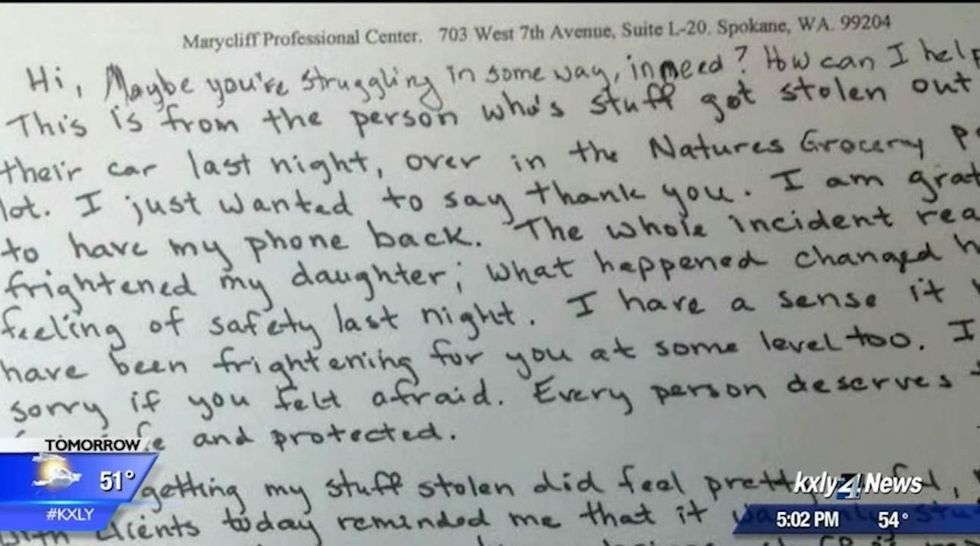 Marycliff Professional Center. 703 West 7th Avenue, Suite L-20. Spokane, WA. 99204
Hi, Maybe you're struggling in some way, in need? How can I help
This is from the person who's stuff got stolen out
their car last night, over in the Natures Grocery P
lot. I just wanted to say thank you. I am grat
to have my phone back. The whole incident rea
frightened my daughter; what happened changed h
feeling of safety last night. I have a sense it
have been frightening for you at some level too. I
sorry if you felt afraid. Every person deserves
and protected.
getting my stuff stolen did feel
clients today reminded me that it
TOMORROW
51°
#KXLY
kxly 4 News
5:02 PM 54°